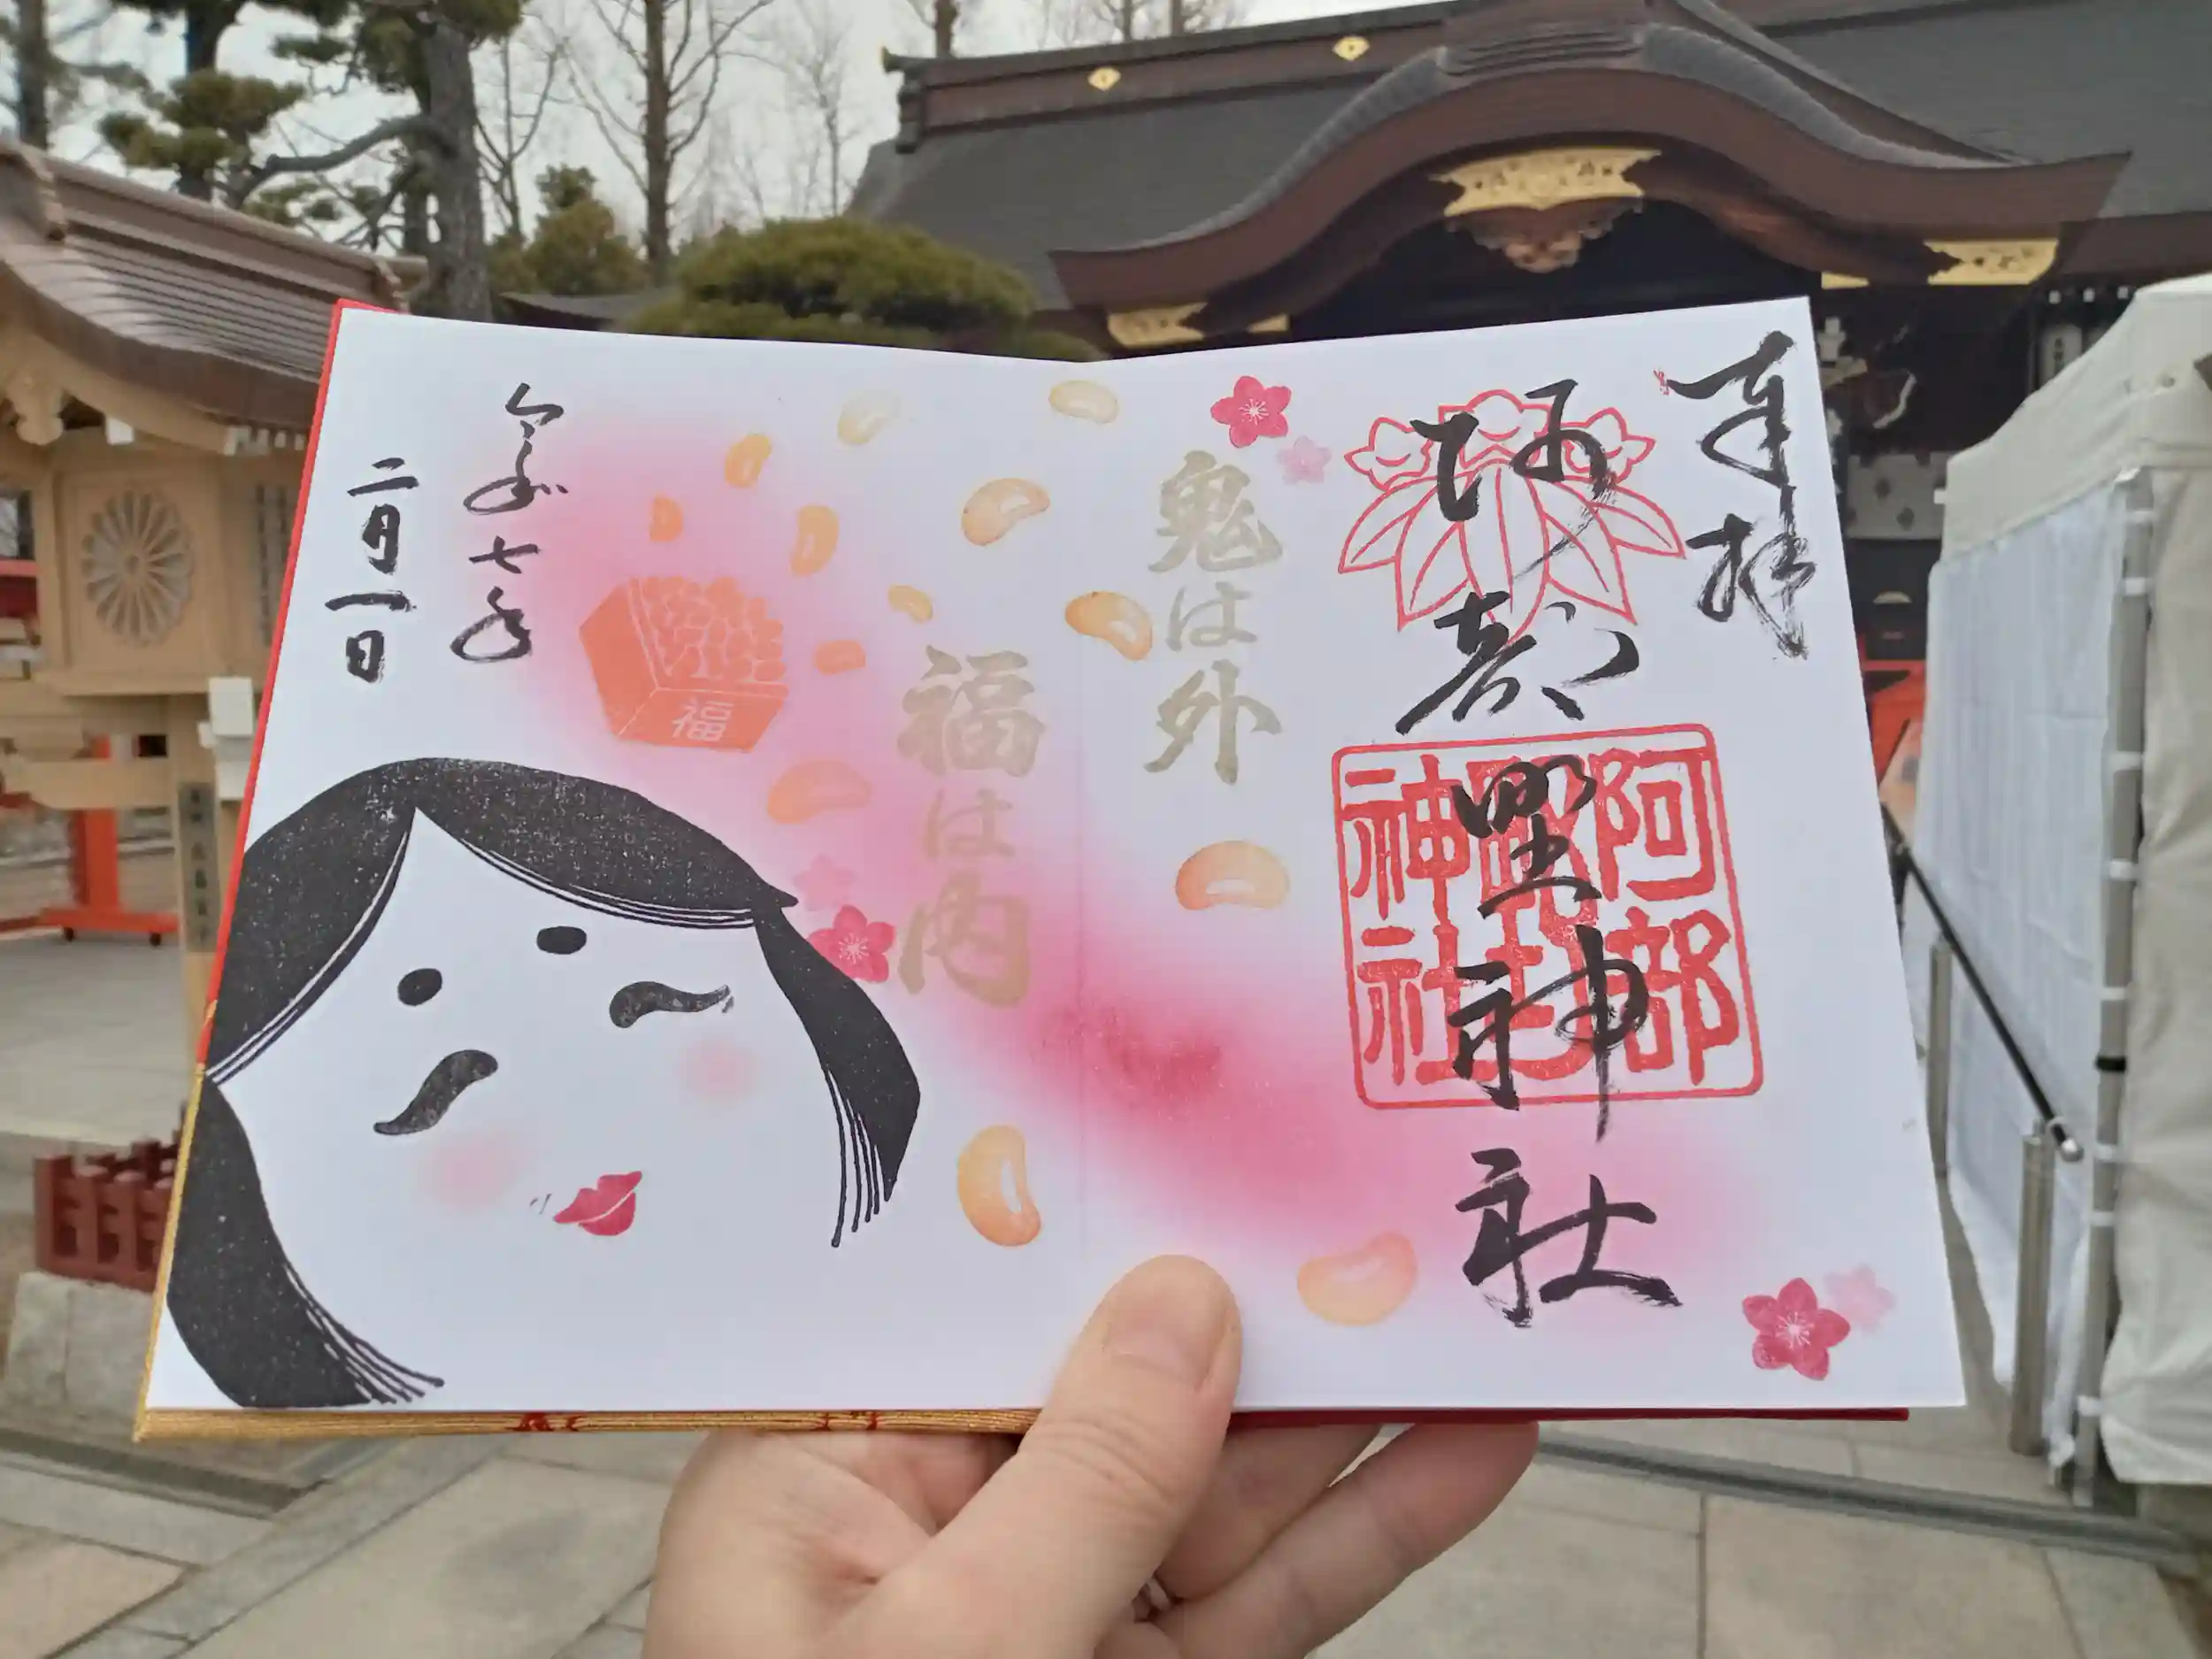 奉拝
阿部野神社
阿部
野
神社
鬼は外
福は内
福
令和七年
二月一日